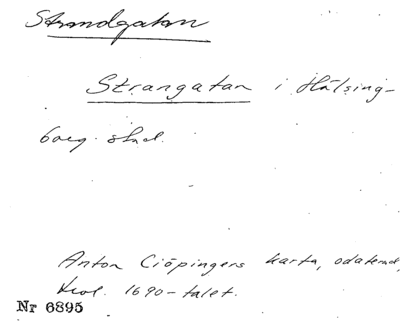 Strandgatan
Strangatan i Hälsing-
borg stad.
Anton Ciöpingers karta, odaterad,
trol. 1690-talet.
Nr 6895